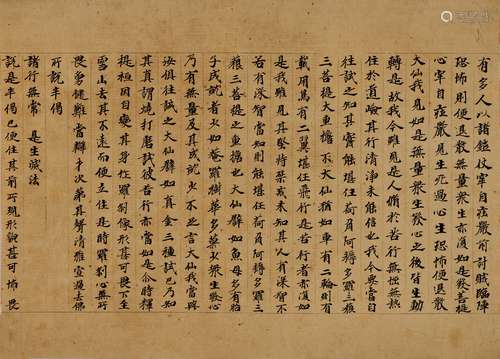 有多人以諸鎧仗牢自莊嚴前討賊臨陣
恐怖則便退散無量衆生亦復如是發菩提
心牢自莊嚴見生死過心生恐怖便退散
大仙我見如是無量衆生發心之後皆生動
轉是故我今雖見是人脩於苦行無惱無熱
住於道嶮其行清淨未能信也我今要當自
往試之知其實能堪任荷負阿耨多羅三藐
三菩提大重擔不大仙猶如車有二輪則有
載用鳥有二翼堪任飛行是苦行者亦復如
是我雖見其堅持禁戒未知其人有深智不
若有深智當知則能堪任荷負阿耨多羅三
藐三菩提之重擔也大仙譬如魚母多有胎
子成就者少如菴羅樹華多菓少衆生發心
乃有無量及其成就少不足言大仙我當與
汝俱往試之大仙譬如真金三種試已乃知
其真謂燒打磨試彼苦行者亦當如是尒時釋
提桓因自變其身作羅刹像形甚可畏下至
雪山去其不遠而便立住是時羅刹心無所
畏勇健難當辯才次第其聲清雅宣過去佛
所說半偈
諸行無常 是生滅法
說是半偈已便住其前所現形貌甚可怖畏